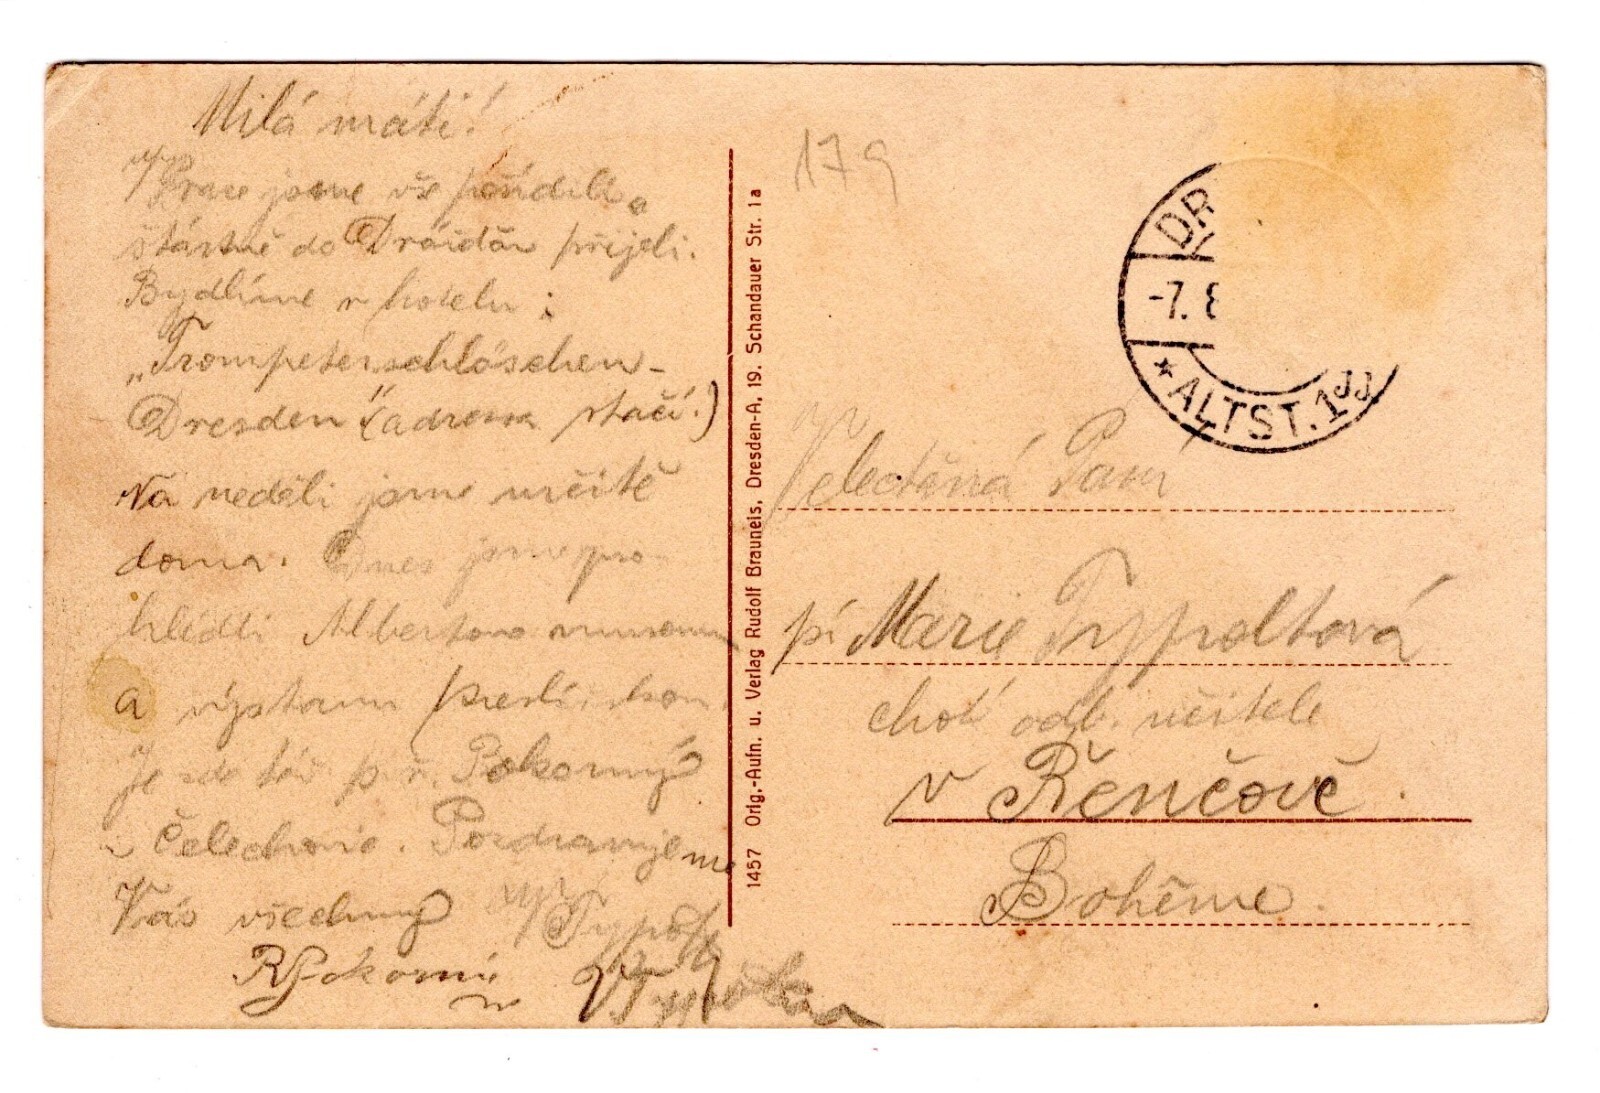 Milá máti!
V Praze jsme vše pořídili a
šťastně do Drážďan přijeli.
Bydlíme v hotelu:
„Trompeterschlöschen-
Dresden" (adressa stačí.)
Na neděli jsme určitě
doma. Dnes jsme pro-
hlédli Albertovo museum
a výstavu
Je zde též p. ř. Pokorný
z Čelechovic. Pozdravujeme
Vás všechny
Typolt
RPokorný
VTypolt
1457 Orig.-Aufn. u. Verlag Rudolf Brauneis, Dresden-A, 19. Schandauer Str. 1a
179
DR
-7. 8
* ALTST. 1
Veledctěná Paní
pí Marie Typoltová
choť odb. učitele
v Řenčově.
Bohême.